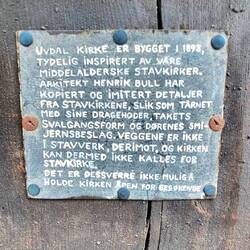 UVDAL KIRKE ER BYGGET I 1893,
TYDELIG INSPIRERT AV VÅRE
MIDDELALDERSKE STAVKIRKER.
ARKITEKT HENRIK BULL HAR
KOPIERT OG IMITERT DETALJER
FRA STAVKIRKENE, SLIK SOM TÅRNET
MED SINE DRAGEHODER, TAKETS
SVALGANGSFORM OG DØRENES SMI-
JERNSBESLAG. VEGGENE ER IKKE
I STAVVERK, DERIMOT, OG KIRKEN
KAN DERMED IKKE KALLES FOR
STAVKIRKE.
DET ER DESSVERRE IKKE MULIG Å
HOLDE KIRKEN ÅPEN FOR BESØKENDE